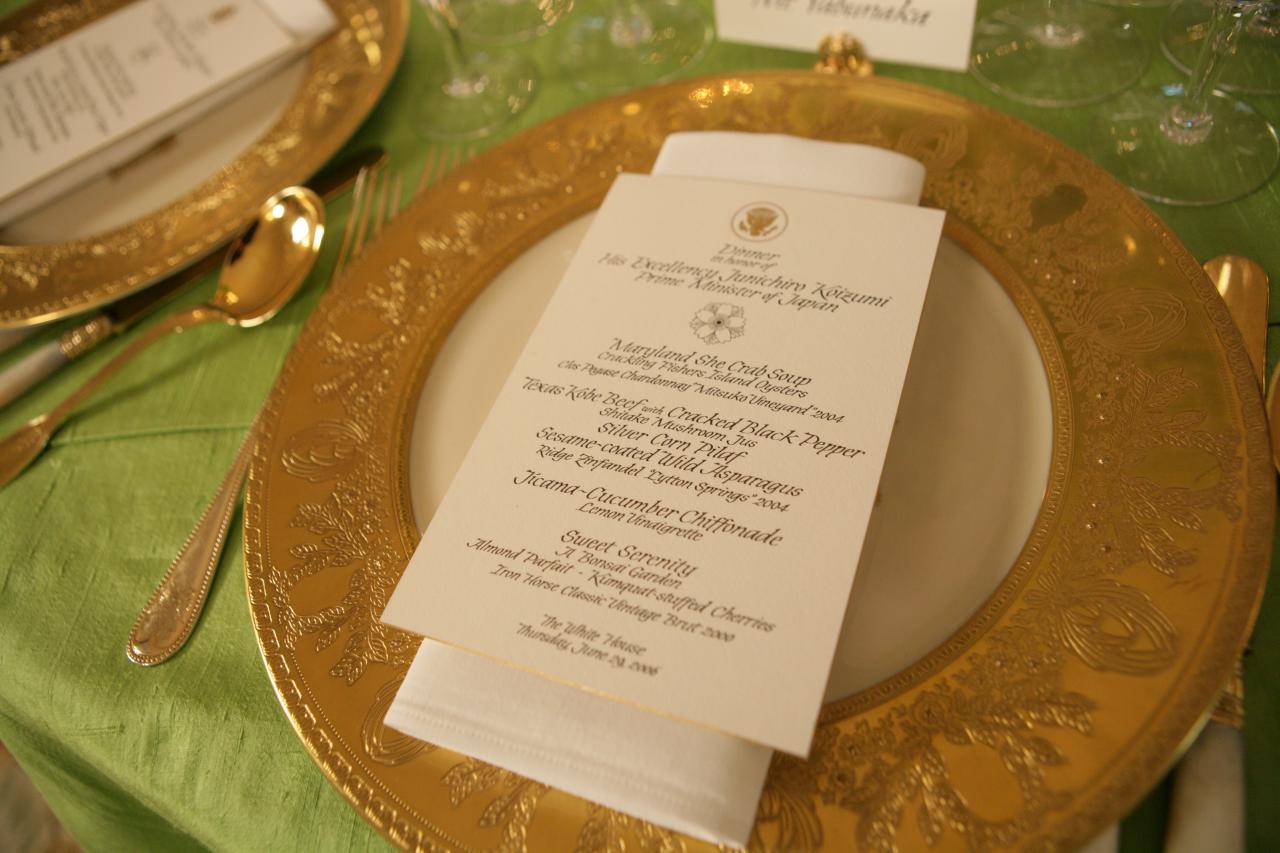 Yabunaka
Dinner
in honor of
His Excellency Junichiro Koizumi
Prime Minister of Japan
Maryland She Crab Soup
Crackling Fishers Island Oysters
Clos Pegase Chardonnay "Mitsuko Vineyard" 2004
Texas Kobe Beef with Cracked Black Pepper
Shitake Mushroom Jus
Silver Corn Pilaf
Sesame-coated Wild Asparagus
Ridge Zinfandel "Lytton Springs" 2004
Jicama-Cucumber Chiffonade
Lemon Vinaigrette
Sweet Serenity
A Bonsai Garden
Almond Parfait - Kumquat-stuffed Cherries
Iron Horse Classic Vintage Brut 2000
The White House
Thursday, June 29, 2006